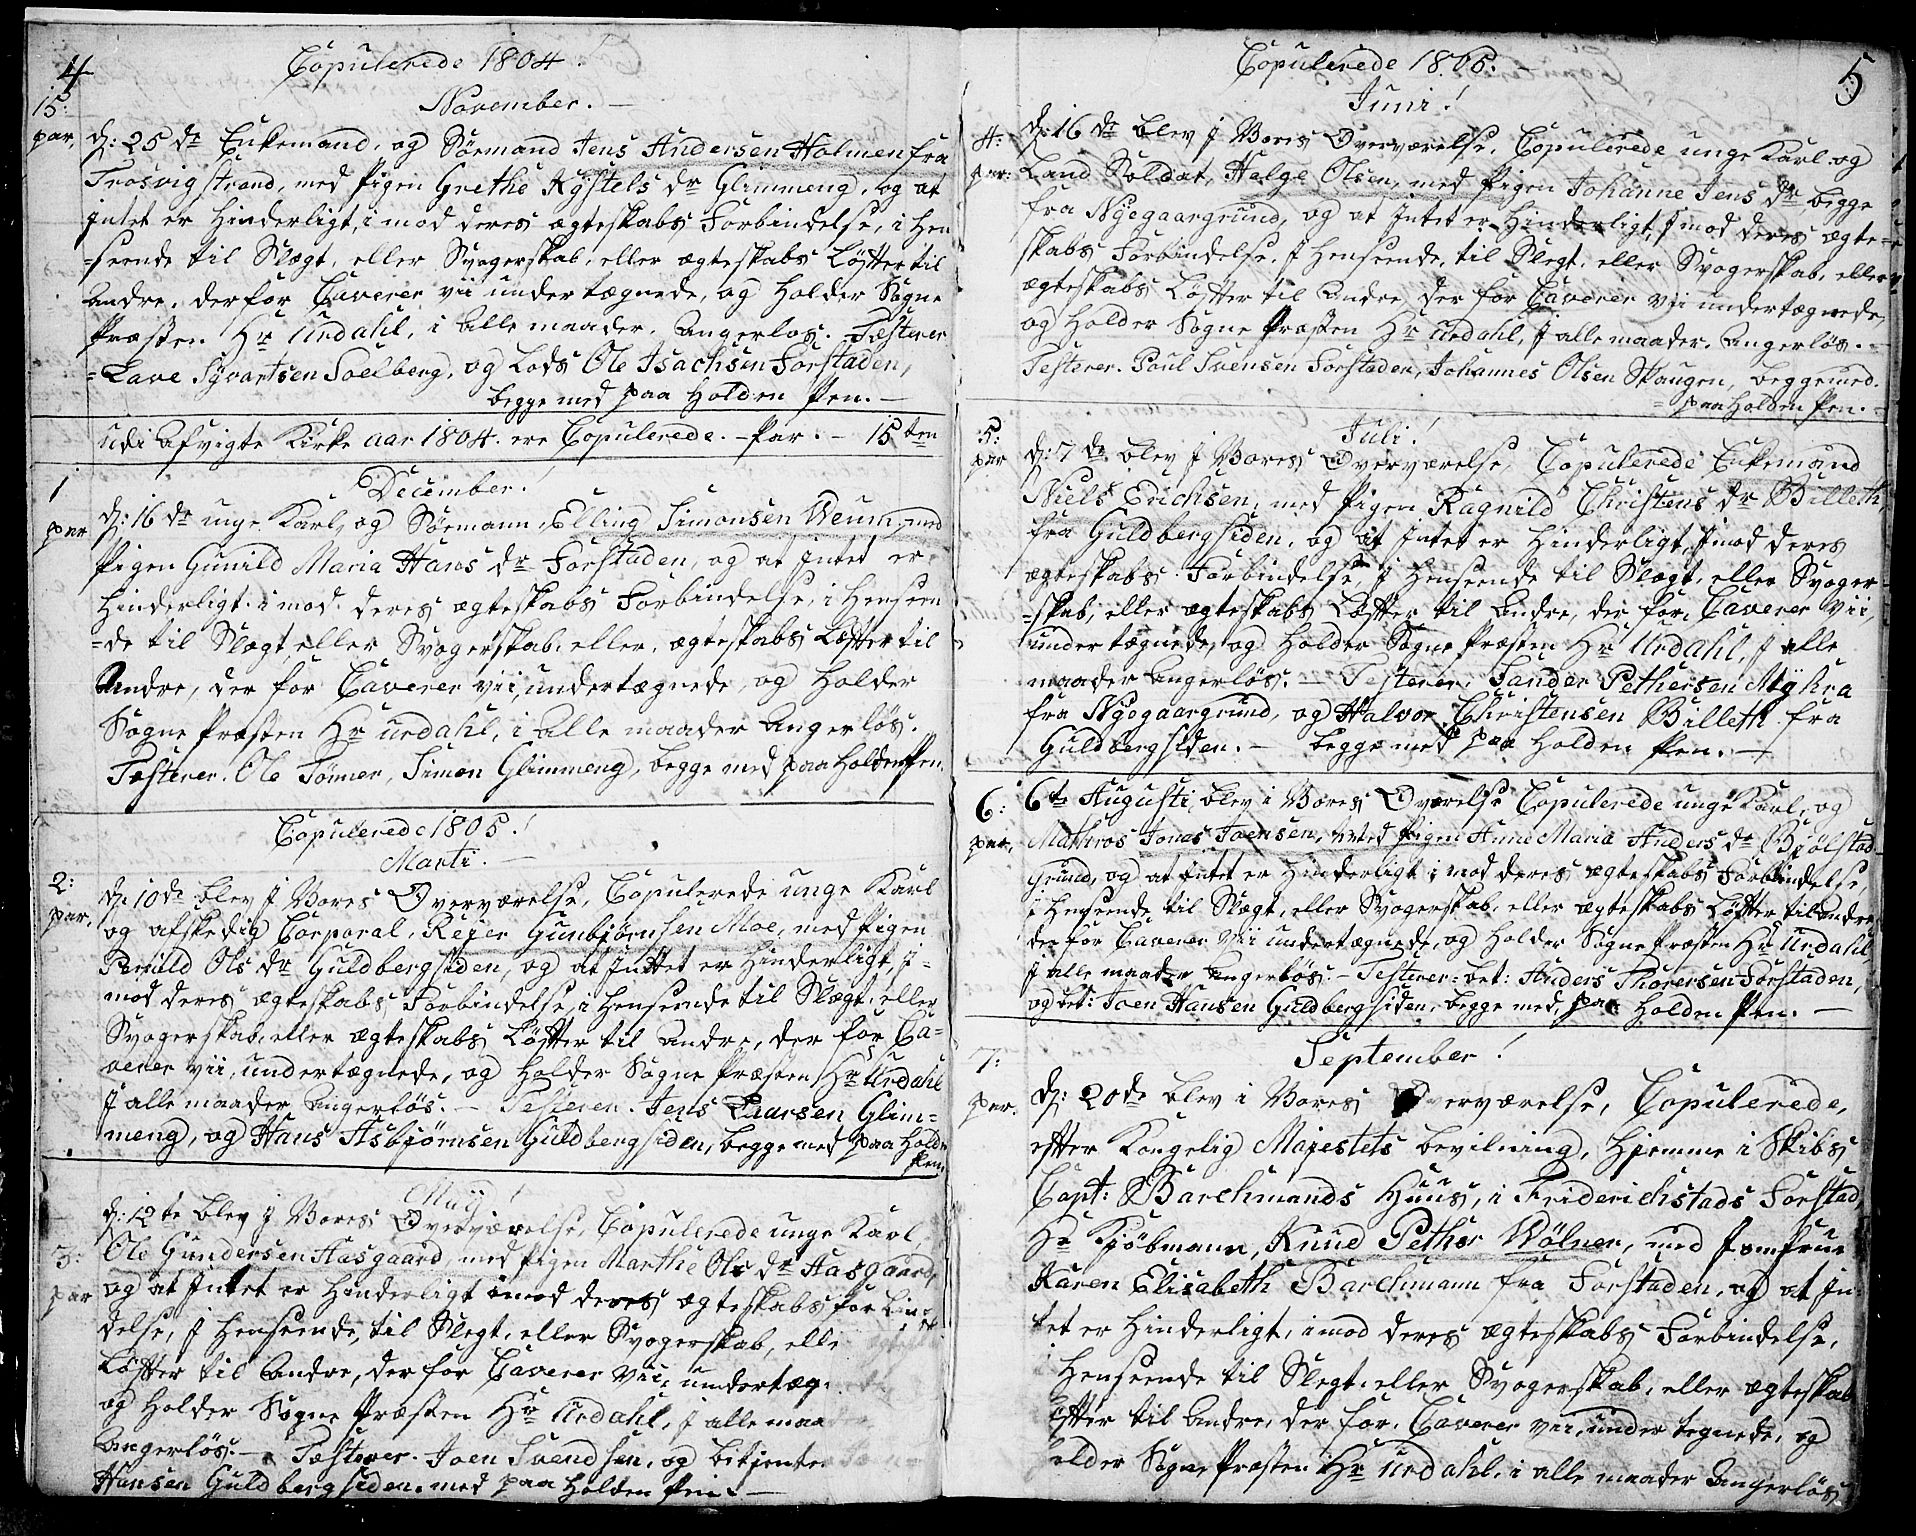 4
Copulerede 1804.
November. —
15:
par,
d: 25 de Enkemand, og Sørmand Jens Andersen Holmen fra
Trosvigstrand, med Pigen Grethe Kystels dr Glimmeng, og at
intet er Hinderligt, i mod deres ægteskabs Forbindelse, i Hen
=seende til Slægt, eller Svogerskab, eller ægteskabs Løfter til
Andre, derfor Caverer vii under tægnede, og Holder Sogne
Præsten Hr Urdahl, i Alle maader, Angerløs. Testerer
=Lave Syvartsen Soelberg, og Lods Ole Isachsen Forstaden,
begge med paa Holden Pen. —
Udi Afvigte Kirke aar 1804. ere Copulerede. — Par. — 15 ten
December!
1
par
d: 16 de unge Karl, og Sørmann, Elling Simonsen Veum, med
Pigen Gunild Maria Hans dr Forstaden, og at Intet er
Hinderligt i mod deres ægteskabs Forbindelse, i Henseen
=de til Slægt eller Svogerskab, eller, ægteskabs Løfter til
Andre, der for Caverer vii, undertægnede, og Holder
Sogne Præsten Hr Urdahl, i Alle maader Angerløs.
Testerer. Ole Tønner, Simon Glimmeng, begge med paaholden Pen.
Copulerede 1805.!
Marti. —
2:
par,
d: 10 de blev J Vores Overværelse, Copulerede unge Karl
og afskedig Corporal, Rejer Gunbjørnsen Moe, med Pigen
Pernild Ols dr Guldbergsiden, og at Inttet er Hinderligt, J=
mod deres ægteskabs Forbindelse, i Henseende til Slægt, eller
Svogerskab, eller ægteskabs Løfter til Andre, der for Ca=
verer vii, undertægnede, og Holder Sogne Præsten Hr Urdahl
J alle maader Angerløs. — Testerer. Jens Larsen Glim=
meng, og Hans Asbjørnsen Guldbergsiden, begge med paa Holden
Pen.
Maij!
3:
par
d: 12te blev J Vores Overværelse, Copulerede unge Karl,
Ole Gundersen Aasgaard, med Pigen Marthe Ols dr Aasgaard,
og at Intet er Hinderligt imod deres ægteskabs for bin=
delse, J Henseende, til Slegt, eller Svogerskab, elle
Løfter til Andre, der for Caverer vii, undertæg
og Holder Sogne Præsten Hr Urdahl, J alle maa
Angerløs. — Testerer. Joen Svendsen, og bitjenter
Hansen Guldbergsiden, med paa Holden Pen. —
5
Copulerede 1805. —
Juni!
4:
par:
d: 16 de blev J Vores Overværelse, Copulerede unge Karl og
Land Soldat, Helge Olsen, med Pigen Johanne Jens dr, begge
fra Nyegaargrund, og at Intet er Hinderligt, J mod deres ægte=
skabs Forbindelse, J Henseende, til Slegt, eller Svogerskab, eller
ægteskabs Løfter til Andre, der for Caverer vii undertægnede,
og Holder Sogne Præsten Hr Urdahl, J alle maader, Angerløs. —
Testerer. Poul Svensen Forstaden, Johannes Olsen Skaugen, begge med.
=paa Holden Pen. —
Juli!
5:
par
d: 7 de blev J Vores Overværelse, Copulerede Enkemand
Niels Erichsen, med Pigen Ragnild Christens dr Billeth,
fra Guldbergsiden, og at Intet er Hinderligt, J mod deres
ægteskabs Forbindelse, J Henseende til Slægt, eller Svoger
=skab, eller ægteskabs Løfter til Andre, der for, Caverer vii,
under tægnede, og Holder Sogne Præsten Hr Urdahl, J alle
maader Angerløs. — Testerer, Sander Pethersen Myhra
fra Nyegaargrund, og Halvor Christensen Billeth fra
Guldbergsiden. — begge med paa Holden Pen. —
6:
par,
6te Augusti, blev i Vores Overværelse Copulerede unge Karl, og
Mathros Jonas Joensen, med Pigen Anne Maria Anders dr Bjølstad
Grund, og at Intet er Hinderligt i mod deres ægteskabs Forbindelse,
i Henseende til Slægt, eller Svogerskab, eller ægteskabs Løfter til andre,
der for Caverer vii undertægnede, og Holder Sogne Præsten Hr Urdahl
J alle maader Angerløs. — Testerer: bet: Anders Thorersen Forstaden,
og bet: Joen Hansen Guldbergsiden, begge med, paa Holden Pen. —
September!
7:
par.
d: 20de blev i Vores Overværelse, Copulerede,
efter Kongelig Majestets bevilning, Hjemme i Skibs
Capt: Barchmands Huus, i Friderichstads Forstad,
Hr Kjøbmann, Knud Pether Wølner, med Jomfrue
Karen Elisabeth Barchmann fra Forstaden, og at In
tet er Hinderligt, i mod deres ægteskabs Forbindelse,
Henseende til Slegt, eller Svogerskab, eller ægteskab
øfter til Andre, der for, Caverer vii, under tegnede, og
older Sogne Præsten Hr Urdahl, i alle maader Angerløs